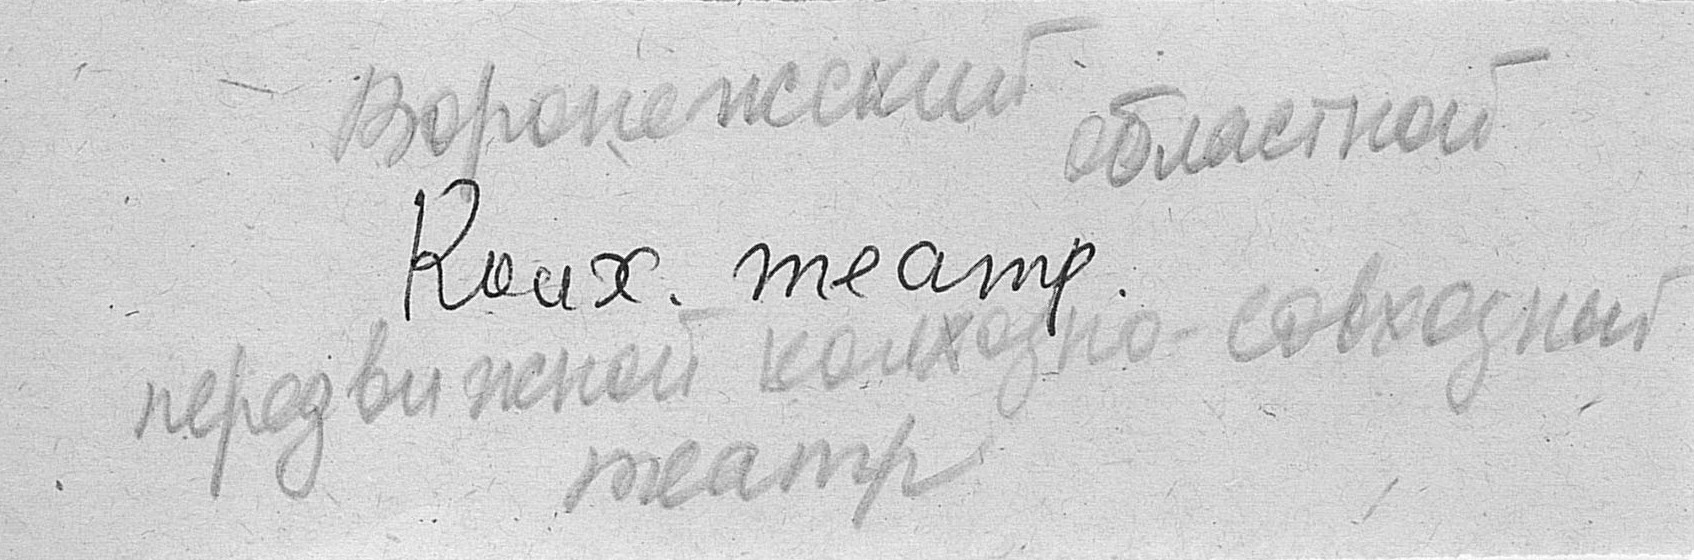 Воронежский областной
Колх. театр.
передвижной колхозно-совхозный
театр